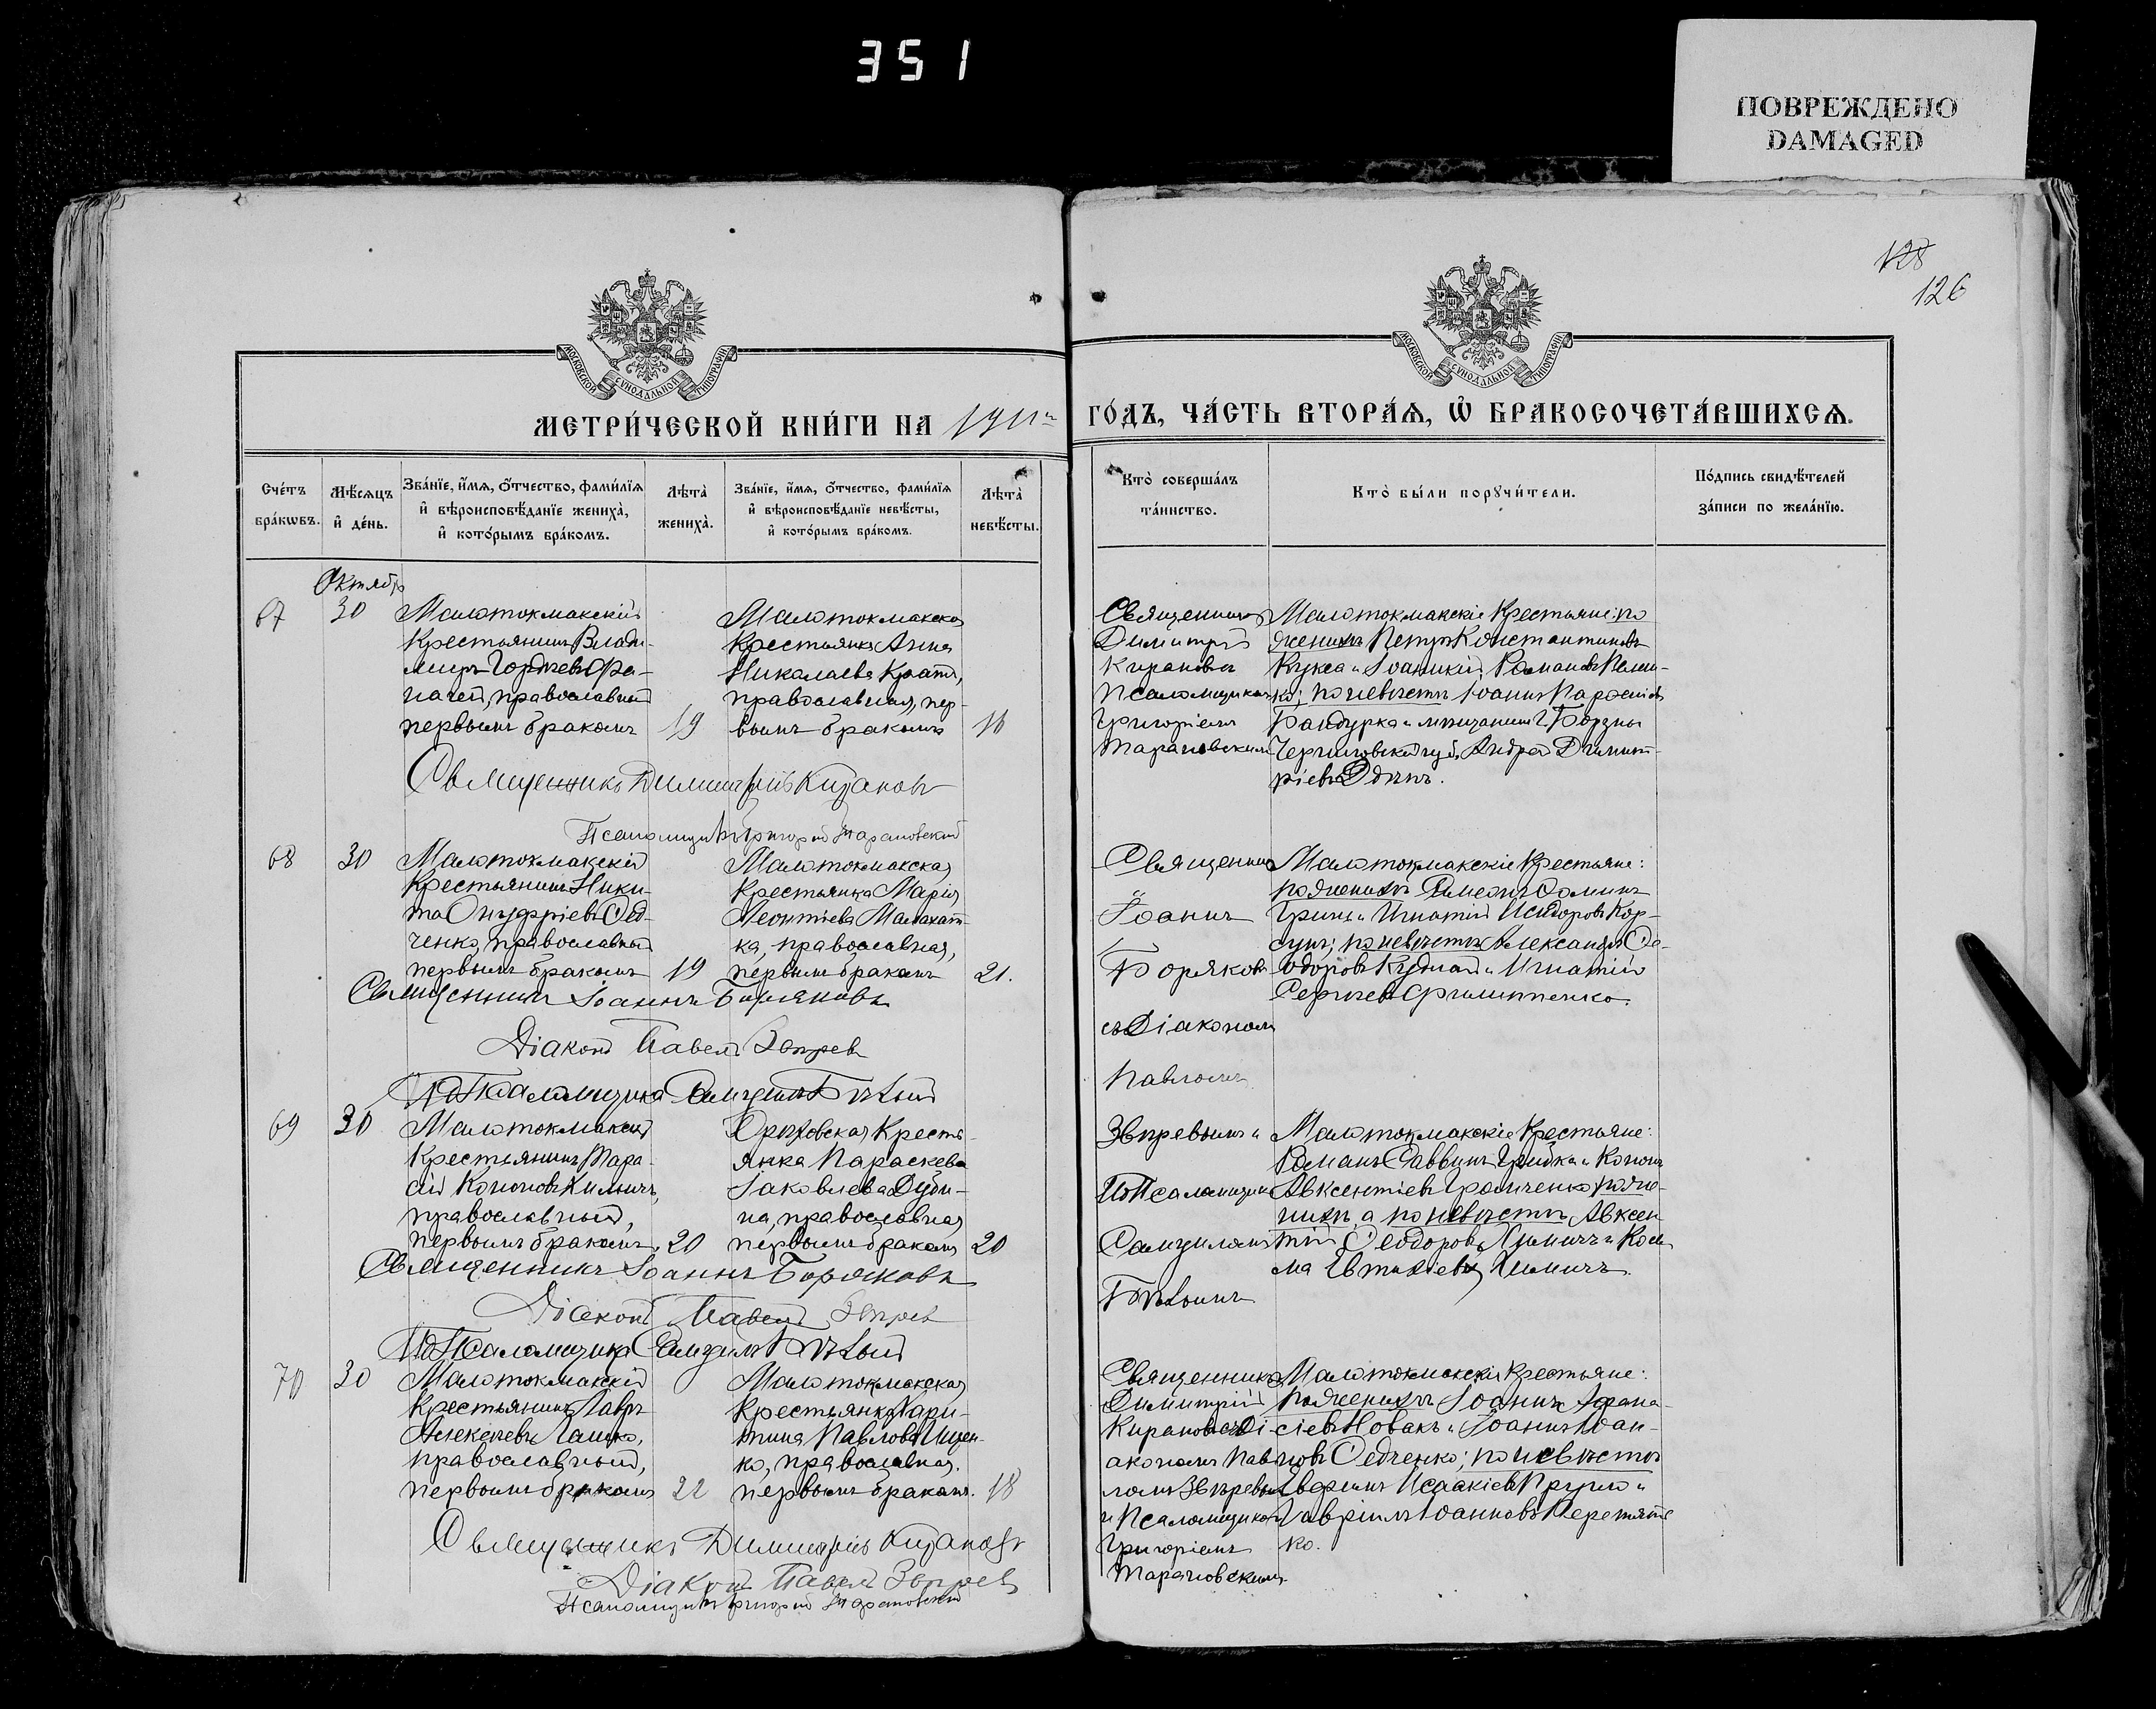 351
ПОВРЕЖДЕНО
DAMAGED
128
126
МОСКОВСКОЙ СУНОДАЛЬНОЙ ТИПОГРАФІИ
МОСКОВСКОЙ СУНОДАЛЬНОЙ ТИПОГРАФІИ
МЕТРИ́ЧЕСКОЙ КНИ́ГИ НА 1911й
ГО́ДЪ, ЧА́СТЬ ВТОРА́Ѧ, Ѽ БРАКОСОЧЕТА́ВШИХСѦ.
Сче́тъ бра́кѡвъ.
Мѣ́сяцъ и҆ де́нь.
Зва́нїе, и҆́мѧ, ѻ҆́тчество, фами́лїѧ и҆ вѣроисповѣ́данїе жениха̀, и҆ кото́рымъ бра́комъ.
Лѣта̀ жениха̀.
Зва́нїе, и҆́мѧ, ѻ҆́тчество, фами́лїѧ и҆ вѣроисповѣ́данїе невѣ́сты, и҆ кото́рымъ бра́комъ.
Лѣта̀ невѣ́сты.
Кто̀ соверша́лъ та́инство.
Кто̀ бы́ли порꙋчи́тели.
По́дпись свидѣ́телей за́писи по жела́нїю.
Октябр
67 30
Малотокмакскій
Крестьянинъ Влади-
миръ Гордѣевъ
православный
первымъ бракомъ
19
Малотокмакская
Крестьянка Анна
Николаева
православная, пер-
вымъ бракомъ
16
Священникъ
Димитрій
Кирановъ
Псаломщикомъ
Григоріемъ
Тарановскимъ
Малотокмакскіе Крестьяне: по
женихѣ Петръ Константиновъ
Кукса и Іоанникій Романовъ
по невѣстѣ Іоаннъ Парѳеніевъ
Бандурка и мѣщанинъ г. Борзны
Черниговской губ. Андрей Димит-
ріевъ
Священникъ Димитрій Кирановъ
Псаломщикъ Григорій Тарановскій
68 30
Малотокмакскій
Крестьянинъ Ники-
та Онуфріевъ Ѳед-
ченко, православный
первымъ бракомъ
19
Малотокмакская
Крестьянка Марія
Леонтіева Малахат-
ка, православная,
первымъ бракомъ
21.
Священникъ
Іоаннъ
Боряковъ
съ Діакономъ
Павломъ
Малотокмакскіе Крестьяне:
по женихѣ Симеонъ Ѳоминъ
Гринь и Игнатій Исидоровъ Кор-
сунъ; по невѣстѣ Александръ Ѳе-
одоровъ и Игнатій
Сергѣевъ Филиппенко.
Священникъ Іоаннъ Боряковъ
Діаконъ Павелъ Звѣревъ
И. д. Псаломщика Самуилъ Бѣлый
69 30
Малотокмакскій
Крестьянинъ Тара-
сій Кононовъ Химичъ,
православный,
первымъ бракомъ,
20
Орѣховская Кресть-
янка Параскева
Іаковлева Дуби-
на, православная
первымъ бракомъ
20
Звѣревымъ и
И. д. Псаломщика
Самуиломъ
Бѣлымъ
Малотокмакскіе Крестьяне:
Романъ Саввинъ Грибка и Кононъ
Авксентіевъ по же-
нихѣ, а по невѣстѣ Авксен-
тій Ѳеодоровъ Химичъ и Косъ
ма Евтихіевъ Химичъ.
Священникъ Іоаннъ Боряковъ
Діаконъ Павелъ Звѣрев
И. д. Псаломщика Самуилъ Бѣлый
70 30
Малотокмакскій
Крестьянинъ Лавръ
Алексѣевъ
православный,
первымъ бракомъ
22
Малотокмакская
Крестьянка Хари-
тина Павлова Ищен-
ко, православная.
первымъ бракомъ.
18
Священникъ
Димитрій
Кирановъ съ Ді-
акономъ Пав-
ломъ Звѣревымъ
и Псаломщикомъ
Григоріемъ
Тарановскимъ.
Малотокмакскіе Крестьяне:
по женихѣ Іоаннъ Аѳана-
сіевъ Новакъ и Іоаннъ Іоан-
новъ Ѳедченко; по невѣстѣ
Исаакіевъ и
Гавріилъ Іоанновъ Перетять
ко.
Священникъ Димитрій Кирановъ
Діаконъ Павелъ Звѣревъ
Псаломщикъ Григорій Тарановскій